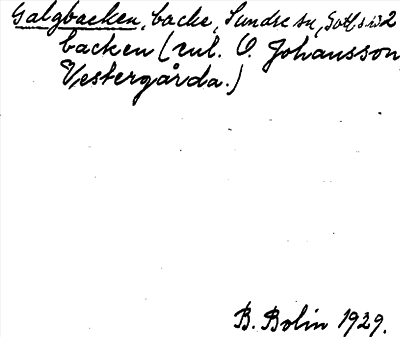 Galgbacken, backe, Sundre sn, Gotl. s. 2
backen (enl. O. Johansson,
Vestergårda.)
B. Bolin 1929.